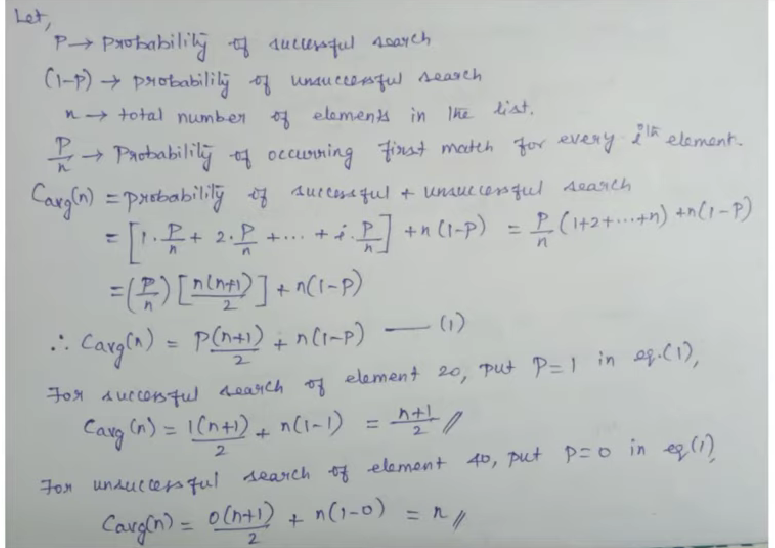 Let,
P → probability of successful search
(1-P) → probability of unsuccessful search
n → total number of elements in the list.
P/n → Probability of occurring first match for every iᵗʰ element.
Cavg(n) = probability of successful + unsuccessful search
= [1·P/n + 2·P/n + ··· + i·P/n] + n(1-P) = P/n (1+2+···+n) + n(1-P)
= (P/n) [n(n+1)/2] + n(1-P)
∴ Cavg(n) = P(n+1)/2 + n(1-P) — (1)
For successful search of element 20, put P=1 in eq.(1),
Cavg(n) = 1(n+1)/2 + n(1-1) = n+1/2 //
For unsuccessful search of element 40, put P=0 in eq(1),
Cavg(n) = 0(n+1)/2 + n(1-0) = n //